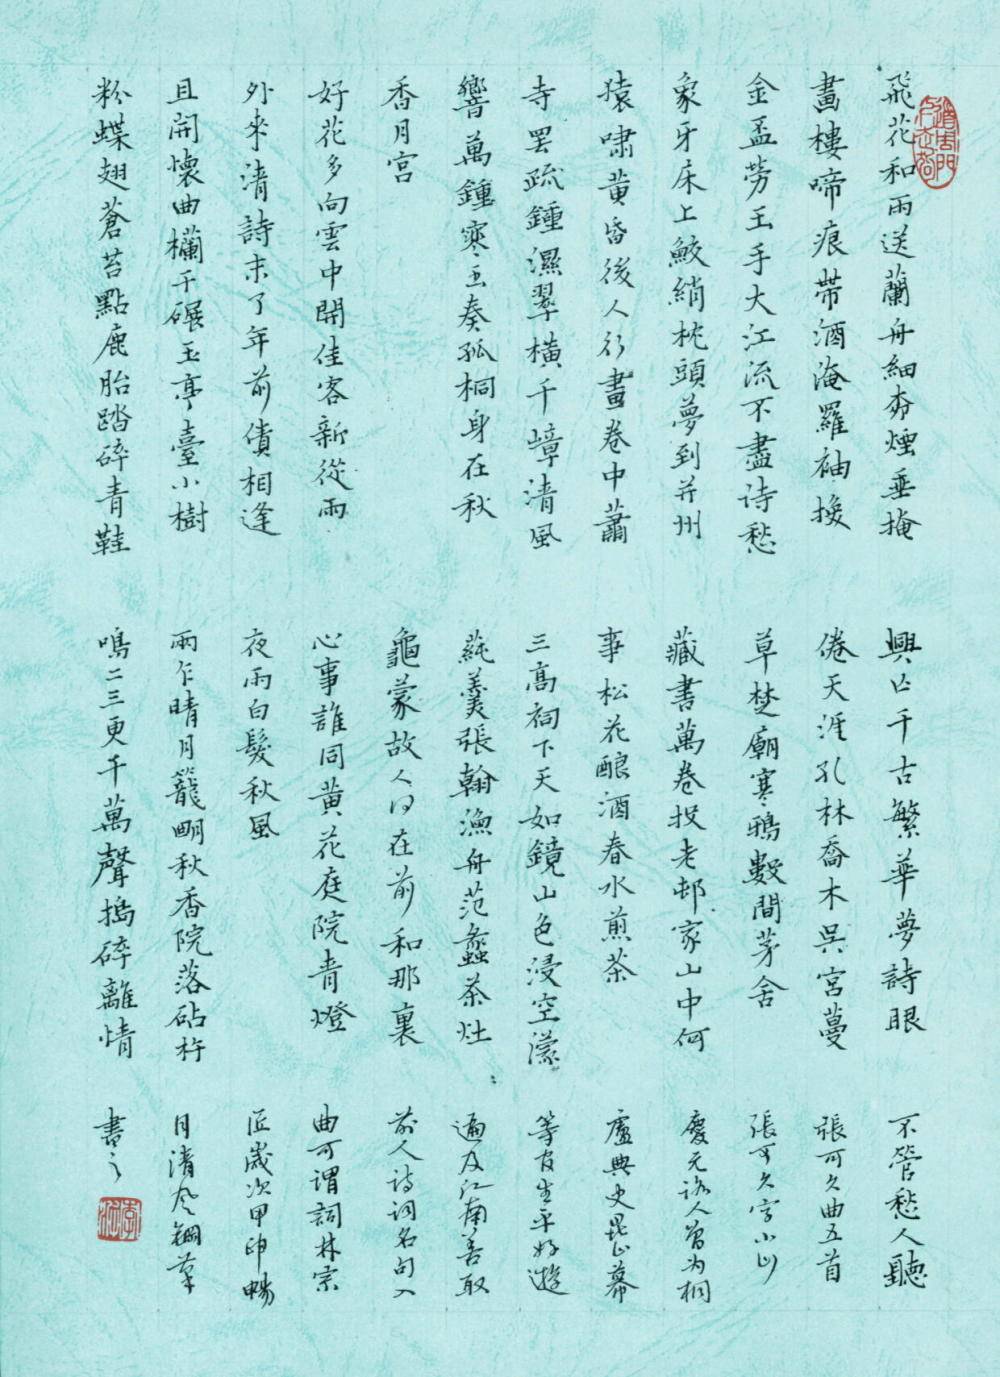 飛花和雨送蘭舟細夯煙垂掩
畫樓啼痕帶酒淹羅袖换
金盃勞玉手大江流不盡诗愁
象牙床上鮫綃枕頭夢到并州
猿嘯黄昏後人行畫卷中蕭
寺罢疏鍾濕翠橫千嶂清風
響萬鍾寒玉奏孤桐身在秋
香月宫
好花多向雲中開佳客新從雨
外來清詩未了年前債相逢
且開懷曲欄干碾玉亭臺小樹
粉蝶翅蒼苔點鹿胎踏碎青鞋
興亡千古繁華夢詩眼
倦天涯孔林喬木吳宮蔓
草楚廟寒鴉數間茅舍
藏書萬卷投老邨家山中何
事松花酿酒春水煎茶
三高祠下天如鏡山色浸空濛
蒓羹張翰漁舟范蠡茶灶
龜蒙故人何在前和那裏
心事誰同黄花庭院青燈
夜雨白髮秋風
雨乍晴月籠明秋香院落砧杵
鳴二三更千萬聲搗碎離情
不管愁人聽
張可久曲五首
張可久字小山
慶元路人曾为桐
廬典史昆山幕
等官生平好遊
遍及江南善取
前人诗词名句入
曲可谓詞林宗
匠歲次甲申暢
月清风鋼筆
書之